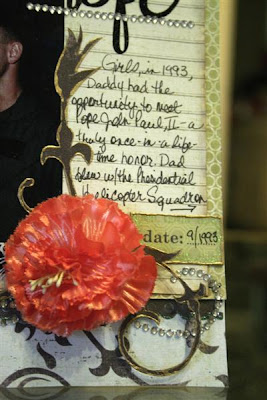 Girls, in 1993,
Daddy had the
opportunity to meet
Pope John Paul, II - a
truly once-in-a-life-
time honor. Dad
flew w/the Presidential
Helicopter Squadron
date: 9/1993